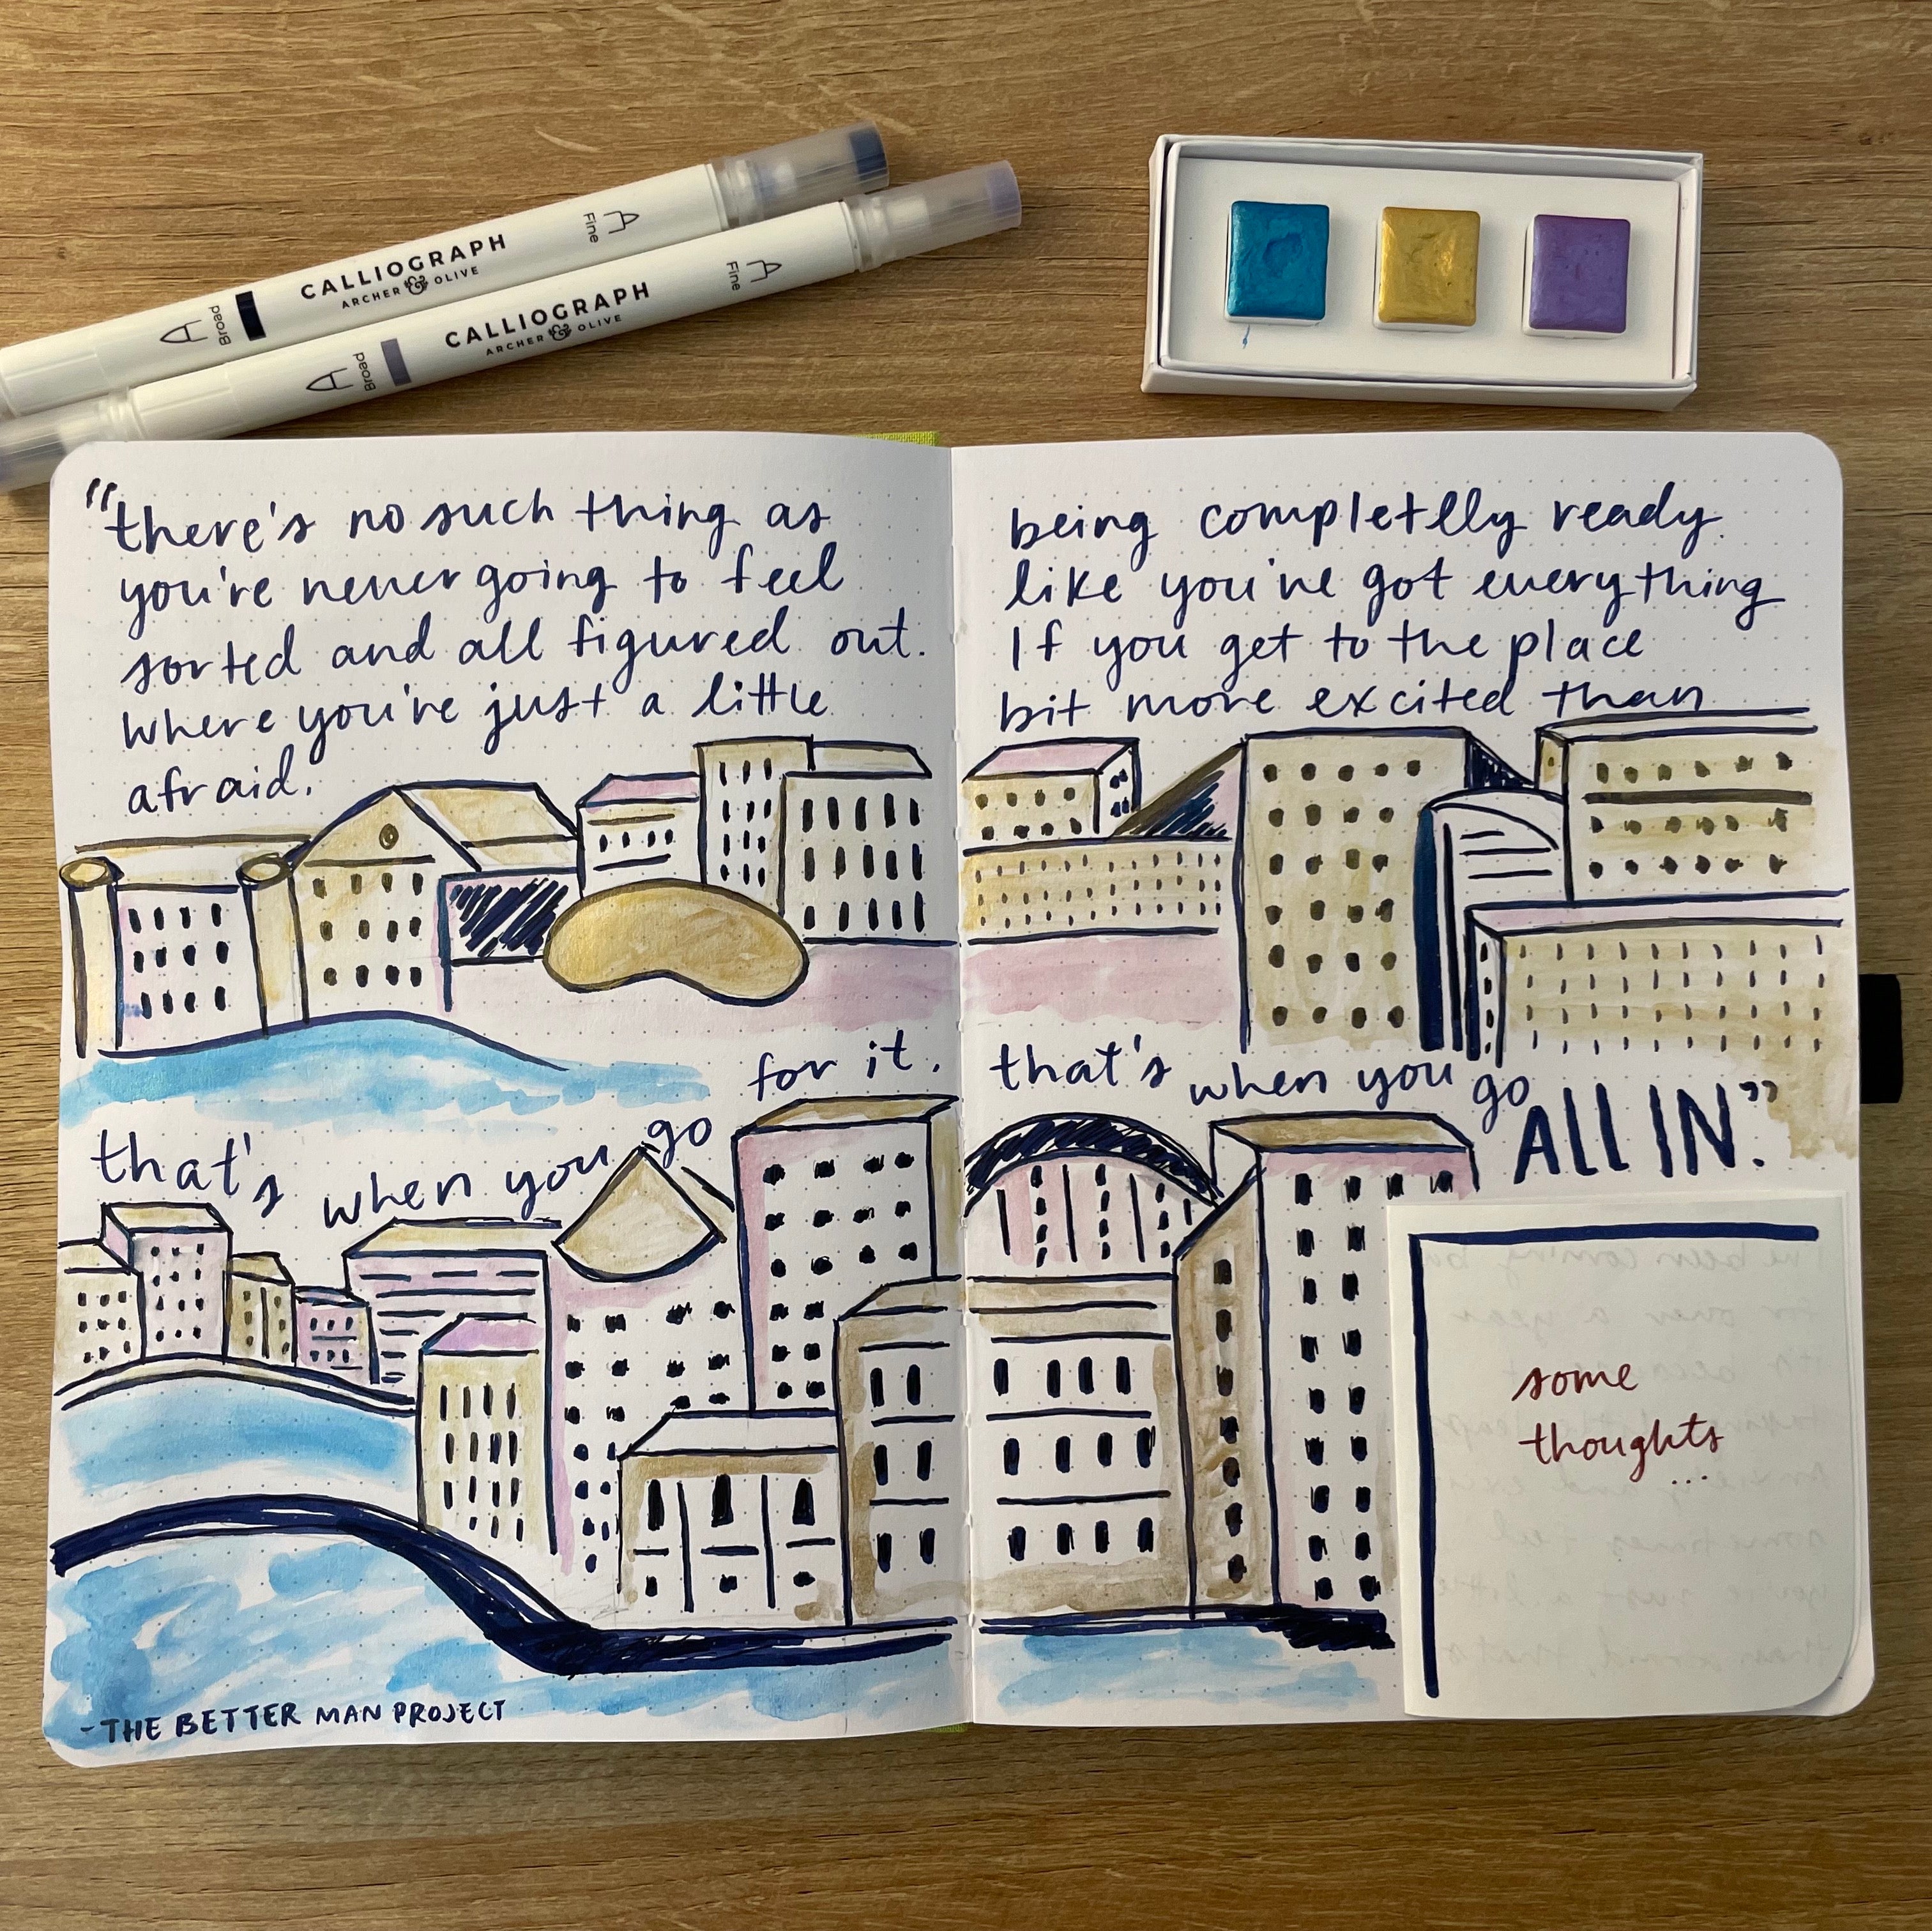 Broad CALLIOGRAPH Fine
ARCHER & OLIVE
Broad CALLIOGRAPH Fine
ARCHER & OLIVE
"there's no such thing as being completely ready.
you're never going to feel like you've got everything
sorted and all figured out. If you get to the place
where you're just a little bit more excited than
afraid.
that's when you go for it.
that's when you go ALL IN."
some
thoughts
...
- THE BETTER MAN PROJECT